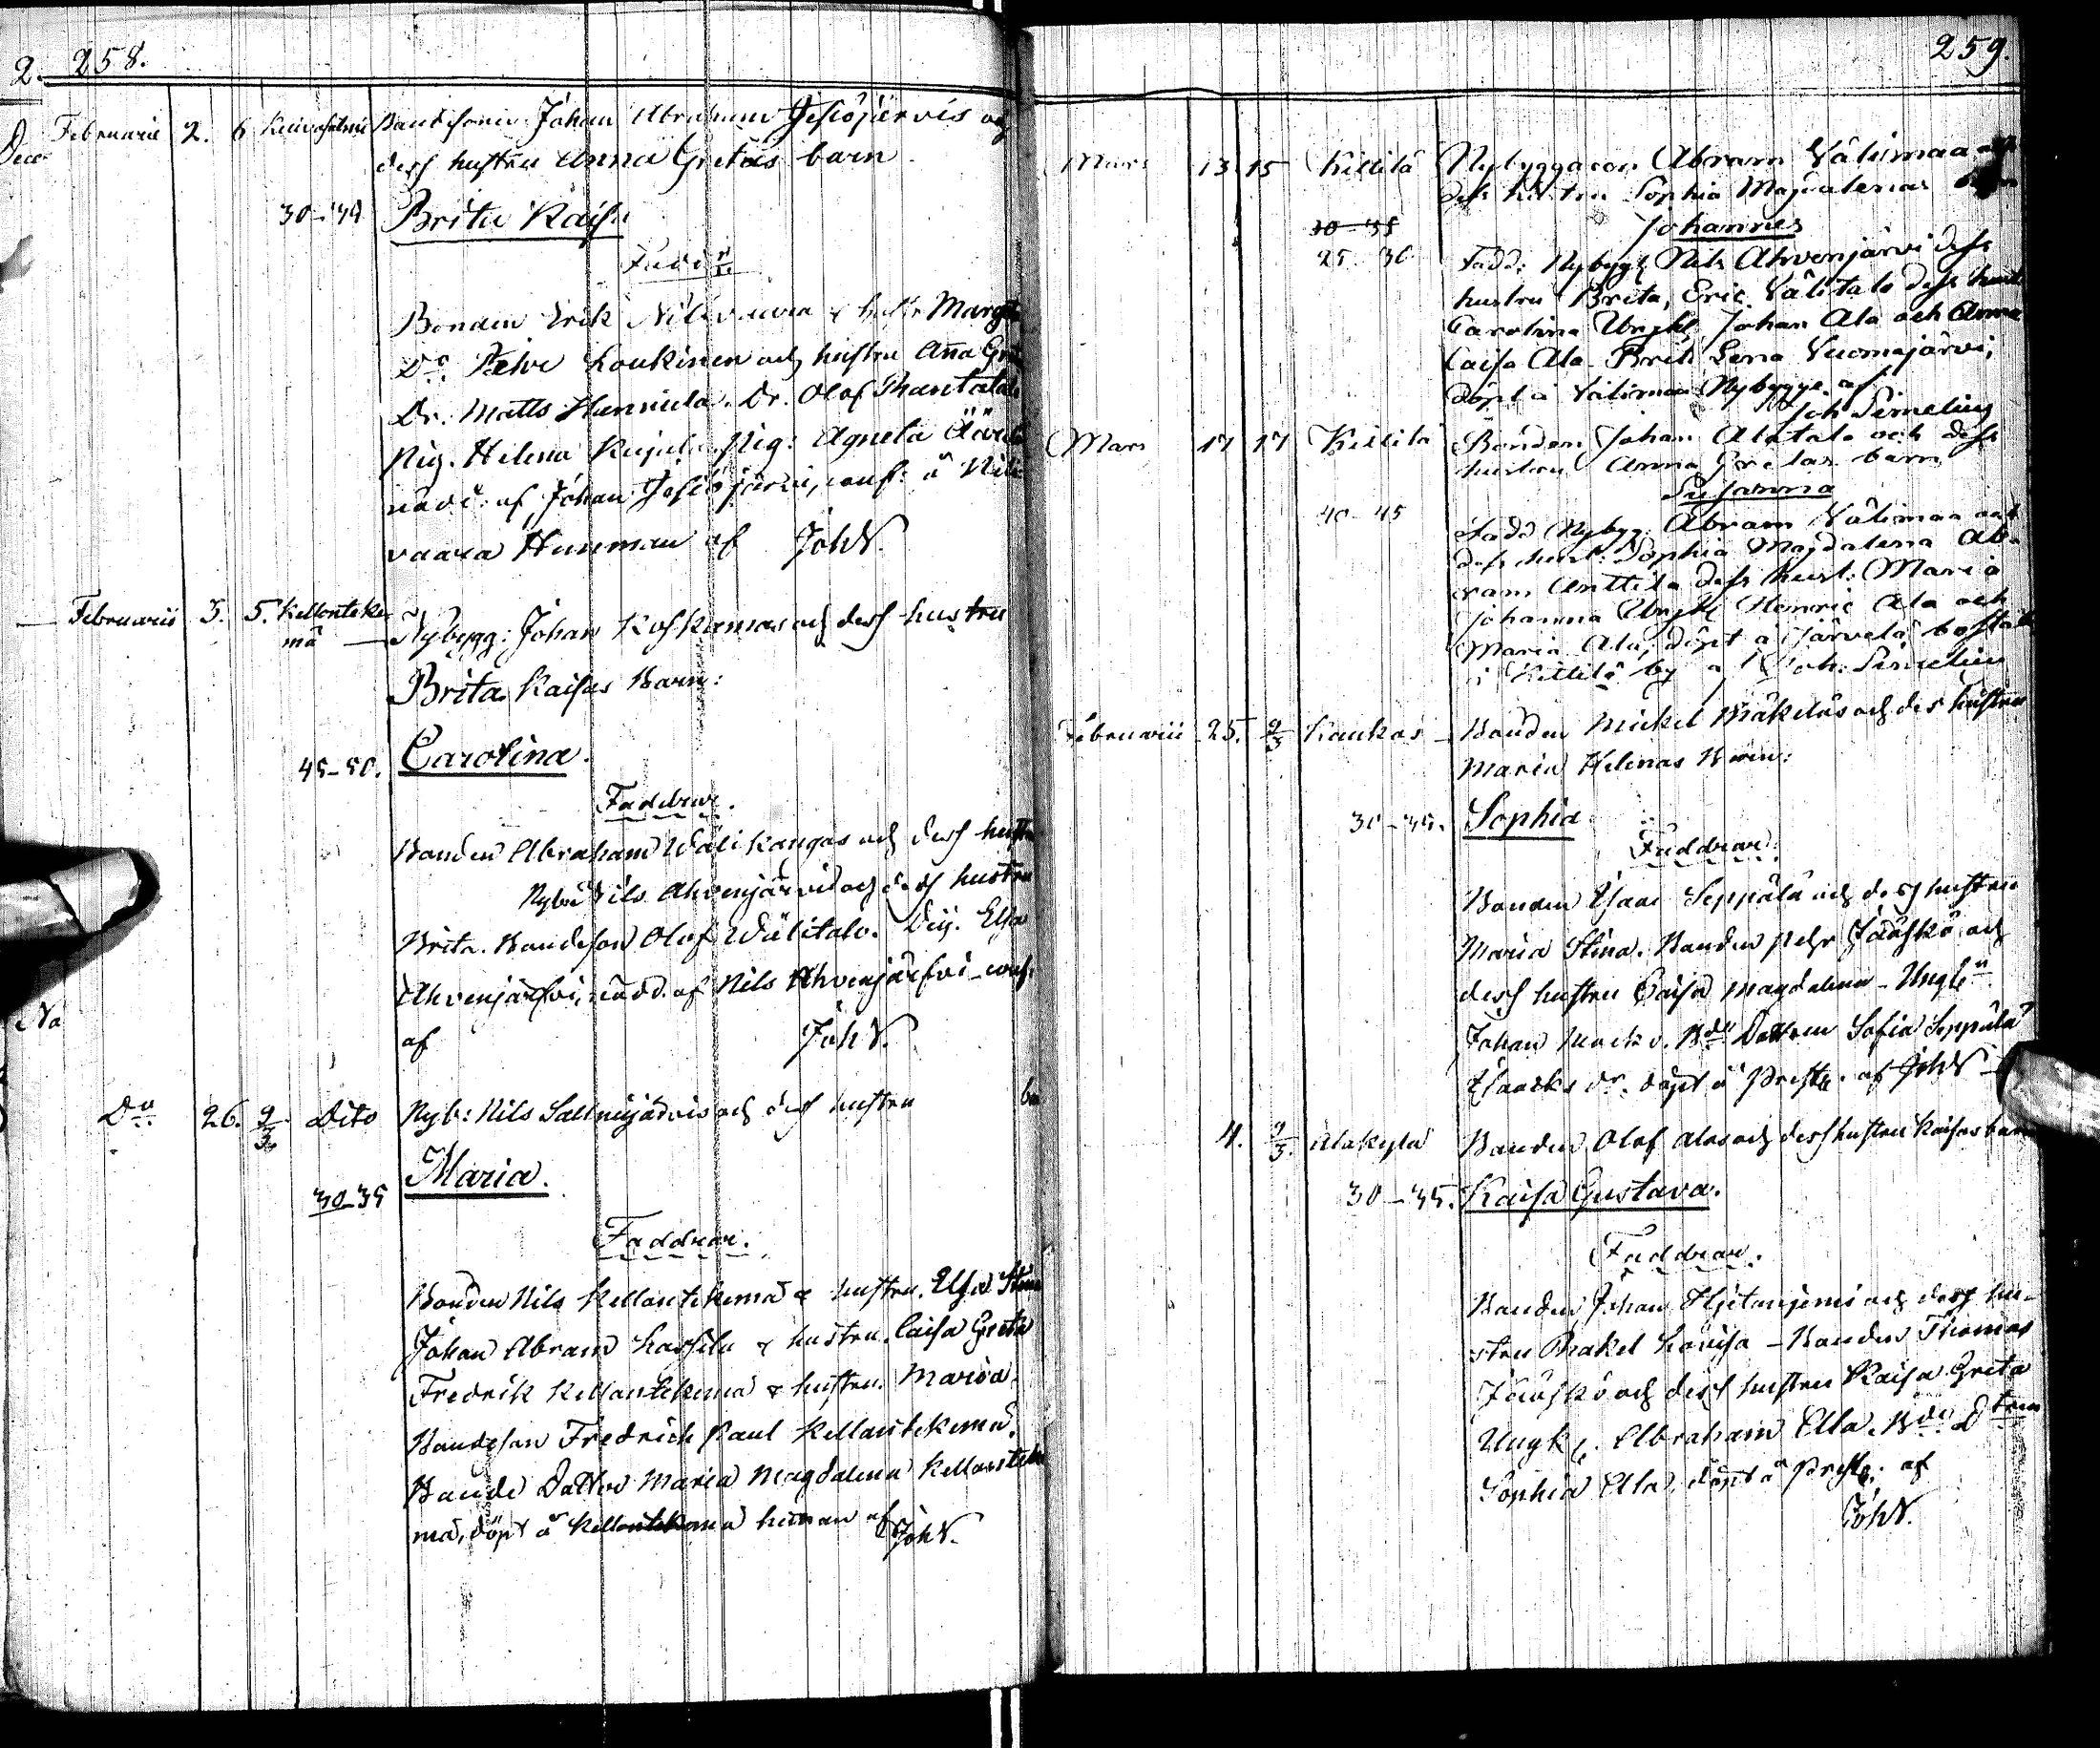 258.
Februarii 2. 6 Bondesonen Johan Abraham Jesiöjärvis och
dess hustru Anna Gretas barn
30-34 Brita Kaisa
Bonden Erik Nilivaara & hustr Margta
Do. Petre Loukinen och hustru Anna Greta
Dr. Matts Hannula. Dr. Olof
Pig. Helena Pig: Agneta
nödd. af Johan Jesiöjärvi, conf. å Nili
vaara Hemman af JohV.
Februarii 3. 5. Kellonteke-
mä Nybygg: Johan Koskamas och dess hustru
Brita Kaisas Barn:
45-50. Carolina.
Faddrar.
Bonden Abraham Wälikangas och dess hustru
Nybr Nils Ahvenjärvi och dess hustru
Brita. Bondeson Olof Wälitalo. Pig. Elsa
Ahvenjärfvi, nödd. af Nils Ahvenjärfvi conf.
af JohV.
Do. 26. 9/3 Dito Nyb: Nils Sallmijärvis och dess hustru
Maria.
30-35
Faddrar.
Bonden Nils Kellontekemä & hustru. Elsa Stina
Johan Abram & hustru. Caisa Greta
Fredrik Kellontekemä & hustru. Maria.
Bondeson Fredrich Paul Kellontekemä.
Bonde Dotter Maria Magdalena Kellonteke
mä, döpt å Kellontekemä heman af JohV.
259.
Mars 13 15 Kittilä Nybyggaren Abram Välimaa och
dess hustru Sophia Magdalenas barn
30-35 Johannes
25 30 Fadd: Nybygg Nils Ahvenjärvi dess
hustru Brita, Eric Välitalo dess hust
Carolina Ungkl Johan Ala och Anna
Caisa Ala Brit Lena Vuomajärvi,
döpt å Välimaa Nybygge af
Joh Simelius
Mars 17 17 Kittilä Bonden Johan Alatalo och dess
hustru Anna Gretas barn
Susanna
40-45 Fadd Nybyg. Abram Välimaa och
dess hust: Sophia Magdalena Ab-
ram Anttila dess hust: Maria
Johanna Ungkl Henric Ala och
Maria Ala, döpt å Järvelä boställe
i Kittilä by af Joh. Simelius
Februarii 25. 9/3 Kaukos Bonden Mickel Mäkeläs och des hustru
Maria Helenas Barn:
30-35. Sophia
Faddrar.
Bonden Isaac Seppälä och dess hustru
Maria Stina. Bonden Pehr Jääskö och
dess hustru Caisa Magdalena - Ungkn
Johan Bde Dottren Sofia Seppälä
döpt å Prestg. af JohV
4. 9/3. Alakylä Bonden Olof Alas och dess hustru Kaisas barn
30-35. Kaisa Gustava.
Faddrar.
Bonden Johan Hjetanjemi och dess hu-
stru Rakel Lovisa - Bonden Thomas
Jääskö och dess hustru Kaisa Greta
Ungk. Abraham Ella. Bde. Dtren
Sophia Ella, döpt å Prestg. af
JohV.